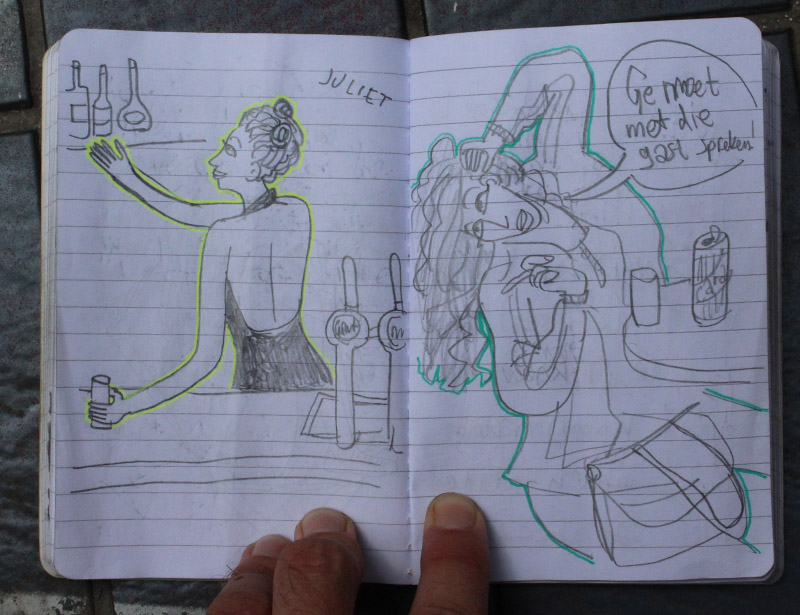 JULIET
Ge moet
met die
gast spreken!